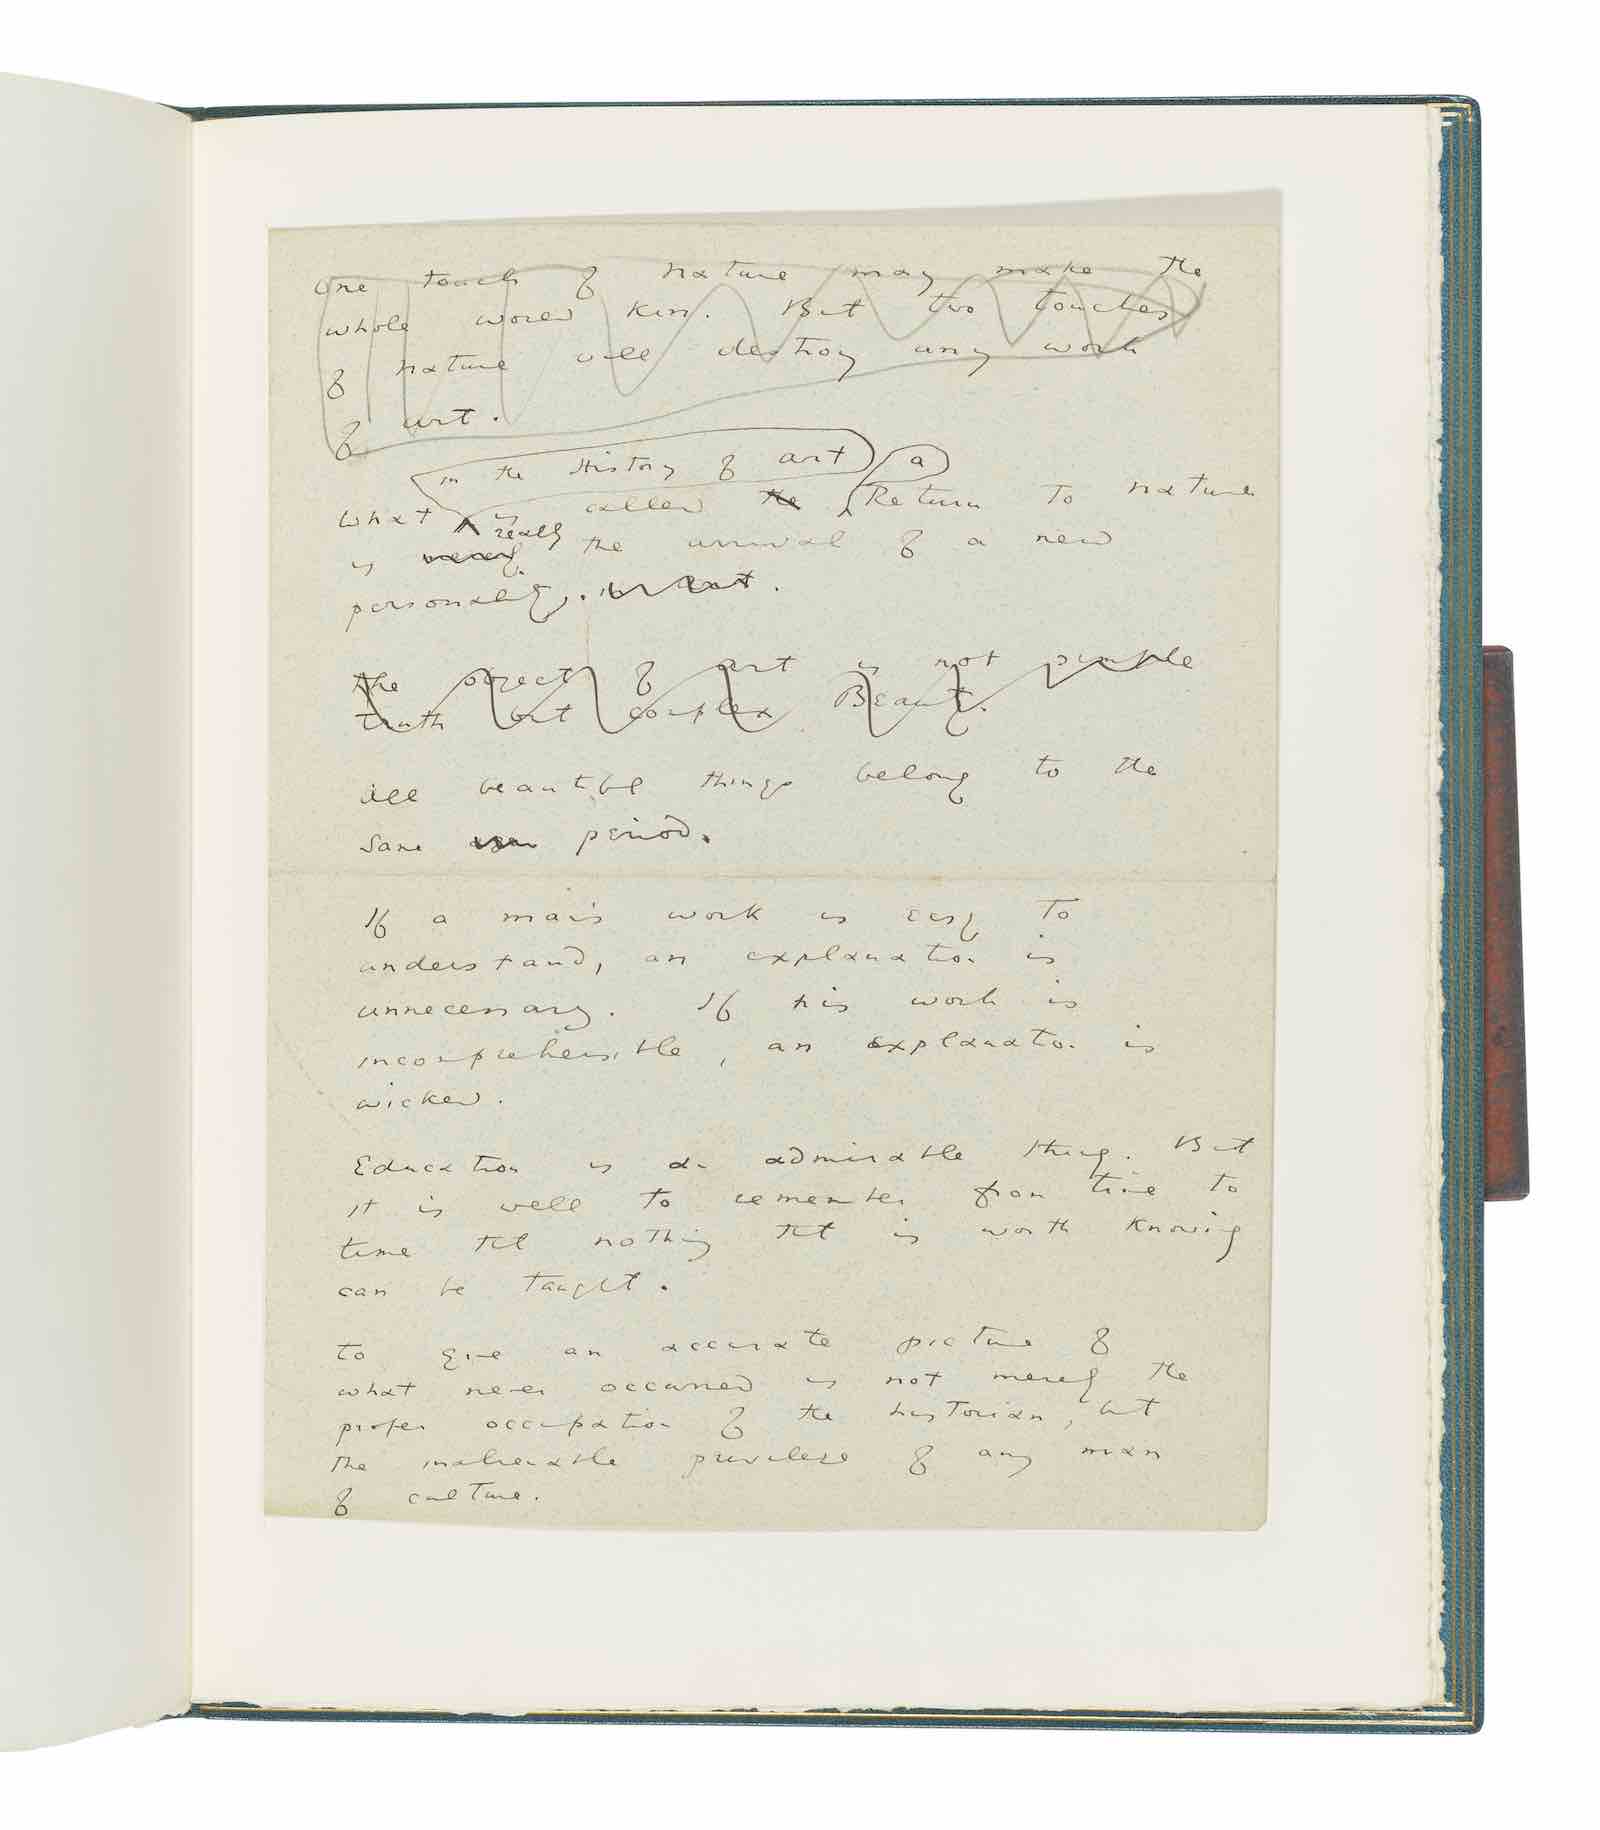 One touch of nature may make the
whole world kin. But two touches
of nature will destroy any work
of art.
in the History of art a
What is called the Return to nature
is really the arrival of a new
personality.
The object of art is not simple
truth but complex Beauty.
All beautiful things belong to the
same period.
If a man's work is easy to
understand, an explanation is
unnecessary. If his work is
incomprehensible, an explanation is
wicked.
Education is an admirable thing. But
it is well to remember from time to
time that nothing that is worth knowing
can be taught.
To give an accurate picture of
what never occurred is not merely the
proper occupation of the historian, but
the inalienable privilege of any man
of culture.